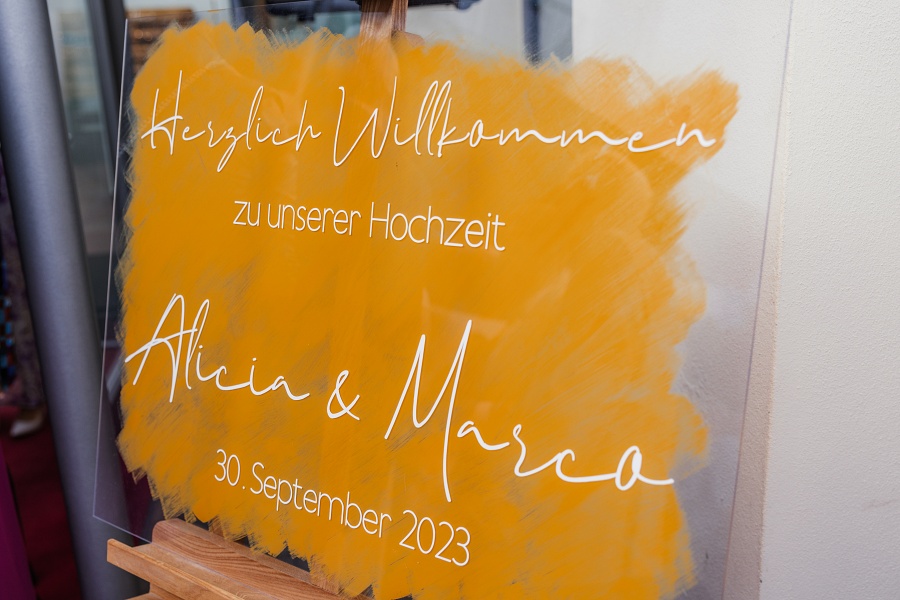 Herzlich Willkommen
zu unserer Hochzeit
Alicia & Marco
30. September 2023